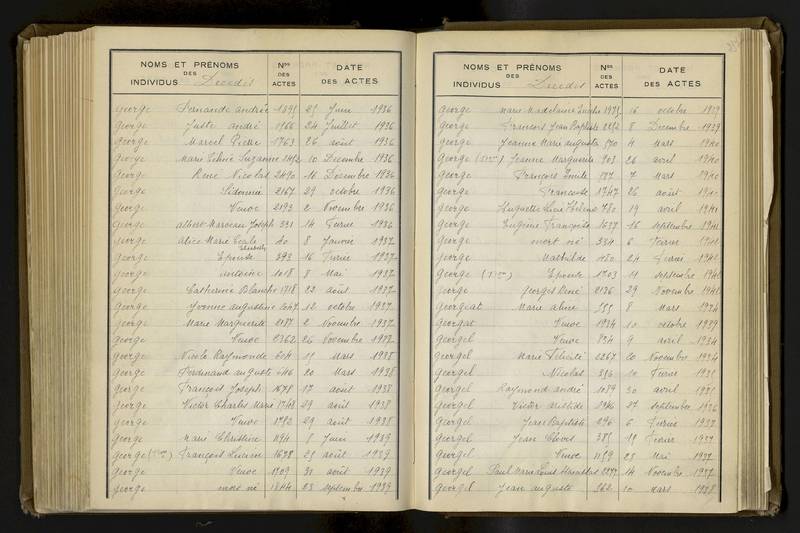 NOMS ET PRÉNOMS
DES
INDIVIDUS Décédés
Nos
DES
ACTES
DATE
DES ACTES
George Fernande Andrée 1395 25 Juin 1936
George Juste André 1566 24 Juillet 1936
George Marcel Pierre 1763 26 août 1936
George Suzanne 10 Decembre 1936
George René Nicolas 2490 16 Decembre 1936
George Sidonnie 2167 29 octobre 1936
George Veuve 2193 2 Novembre 1936
George Albert Marceau Joseph 331 14 Fevrier 1936
George Alice Marie 40 8 Janvier 1937
George Epouse 393 16 Fevrier 1937
George Antoine 1018 8 Mai 1937
George Catherine Blanche 1718 22 août 1937
George Yvonne Augustine 2047 12 octobre 1937
George Marie Marguerite 2187 2 Novembre 1937
George Veuve 2362 26 Novembre 1937
George Nicole Raymonde 604 15 Mars 1938
George Ferdinand Auguste 646 20 Mars 1938
George François Joseph 1678 17 août 1938
George Victor Charles Marie 1748 29 août 1938
George Veuve 1752 29 août 1938
George Marie Christine 1194 8 Juin 1939
George François Lucien 1678 25 août 1939
George Veuve 1709 31 août 1939
George mort né 1844 23 septembre 1939
NOMS ET PRÉNOMS
DES
INDIVIDUS Décédés
Nos
DES
ACTES
DATE
DES ACTES
George Marie Madeleine 1975 16 octobre 1939
George François Jean Baptiste 2252 8 Decembre 1939
George Jeanne Marie Augusta 570 4 Mars 1940
George Jeanne Marguerite 903 26 avril 1940
George François Emile 597 7 Mars 1940
George Francois 1747 26 août 1940
George Huguette 780 19 avril 1941
George Eugène François 1637 16 septembre 1941
George mort né 334 6 Fevrier 1941
George Mathilde 480 24 Fevrier 1942
George Epouse 1703 11 septembre 1942
George Georges René 2136 29 Novembre 1942
Georgeat Marie Aline 555 8 Mars 1934
Georgeat Veuve 1934 10 octobre 1939
Georgel Veuve 834 9 avril 1934
Georgel Marie Félicité 2267 20 Novembre 1934
Georgel Nicolas 356 10 Fevrier 1935
Georgel Raymond André 1089 30 avril 1935
Georgel Victor Aristide 1946 27 septembre 1936
Georgel Jean Baptiste 296 6 Fevrier 1937
Georgel Jean Clovis 385 15 Fevrier 1937
Georgel Veuve 1159 25 Mai 1937
Georgel Paul Marie Louis 14 Novembre 1937
Georgel Jean Auguste 562 10 Mars 1938